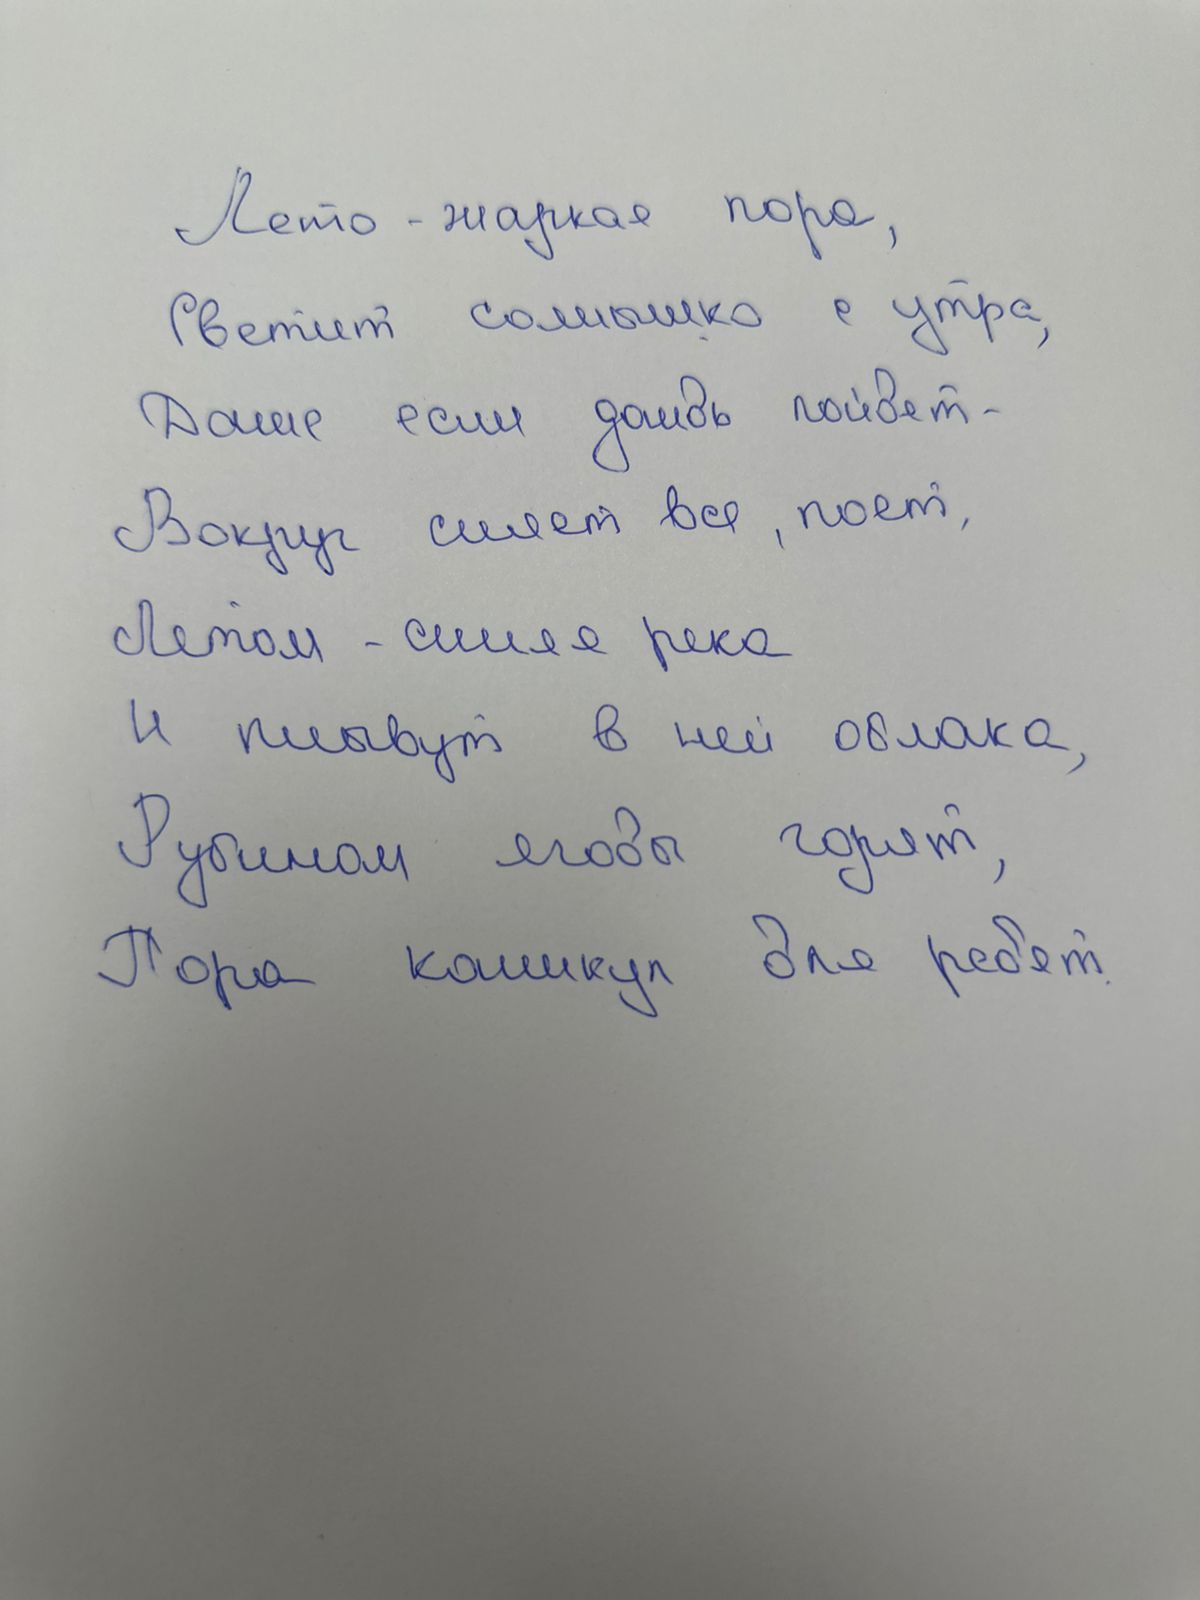 Лето - жаркая пора,
Светит солнышко с утра,
Даже если дождь пойдет -
Вокруг сияет все, поет,
Летом - синяя река
И плывут в ней облака,
Рубином ягоды горят,
Пора каникул для ребят.